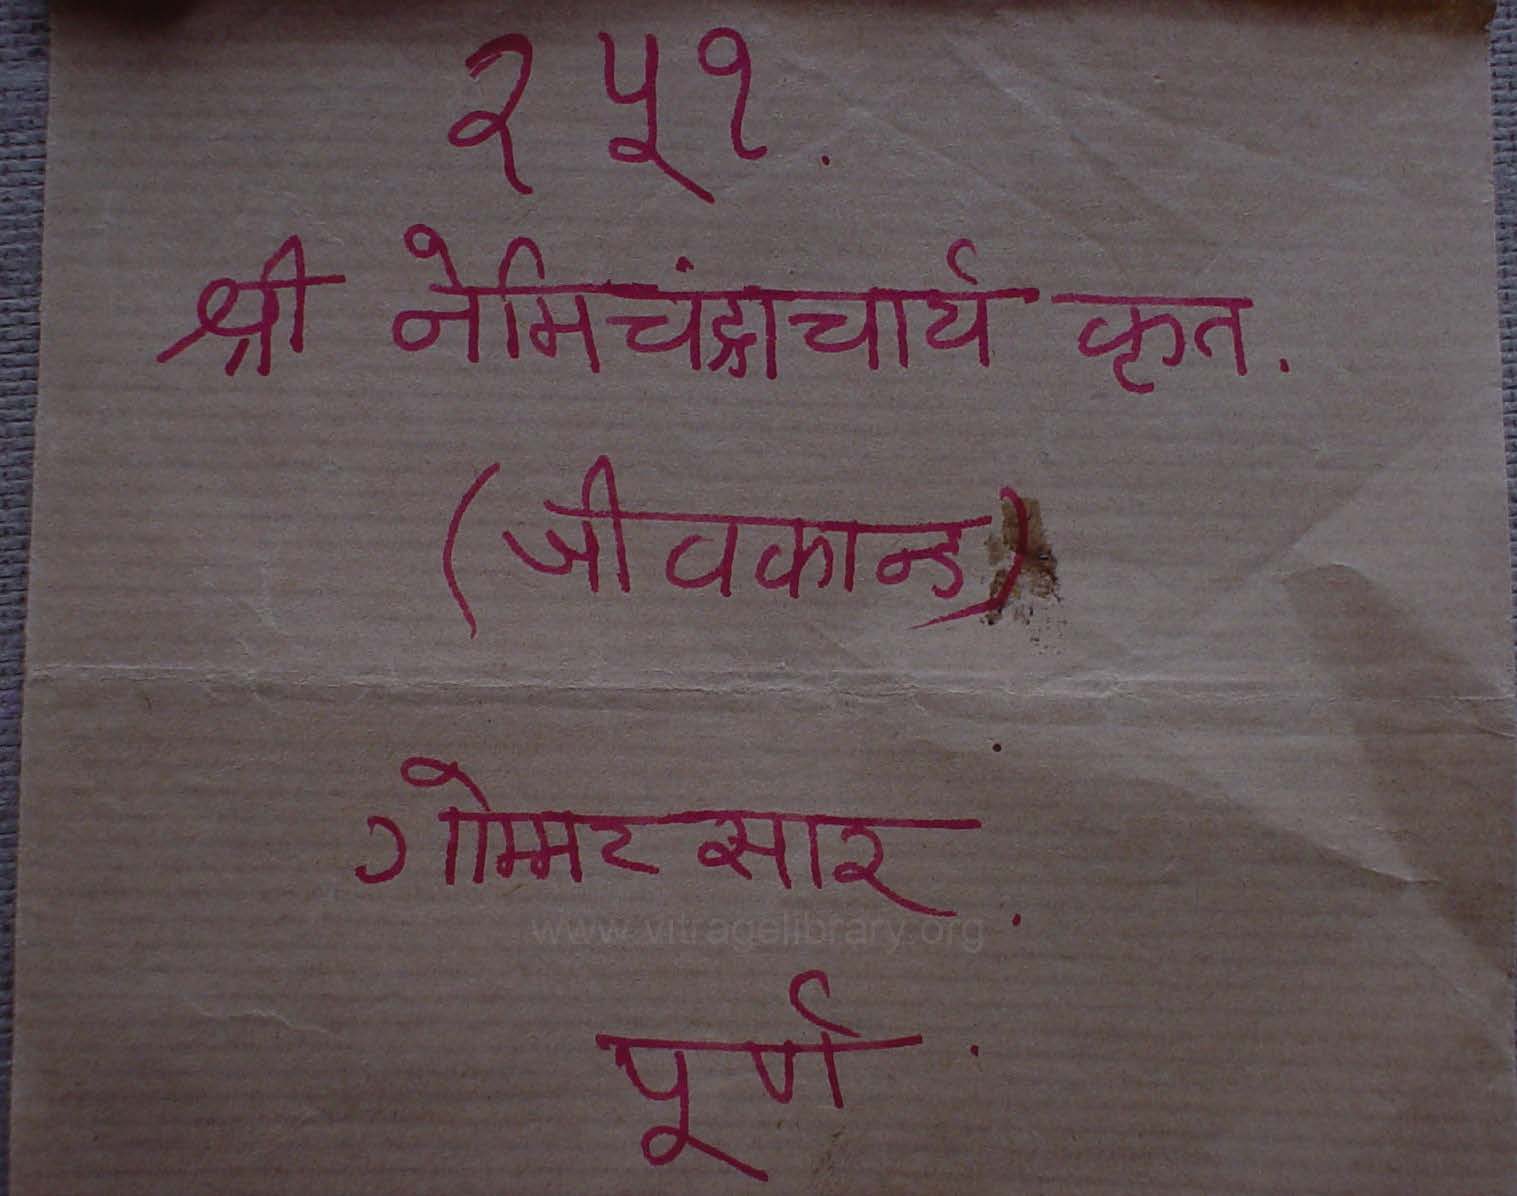 २५१.
श्री नेमिचंद्राचार्य कृत.
(जीवकान्ड)
गोम्मटसार.
www.vitragelibrary.org
पूर्ण.